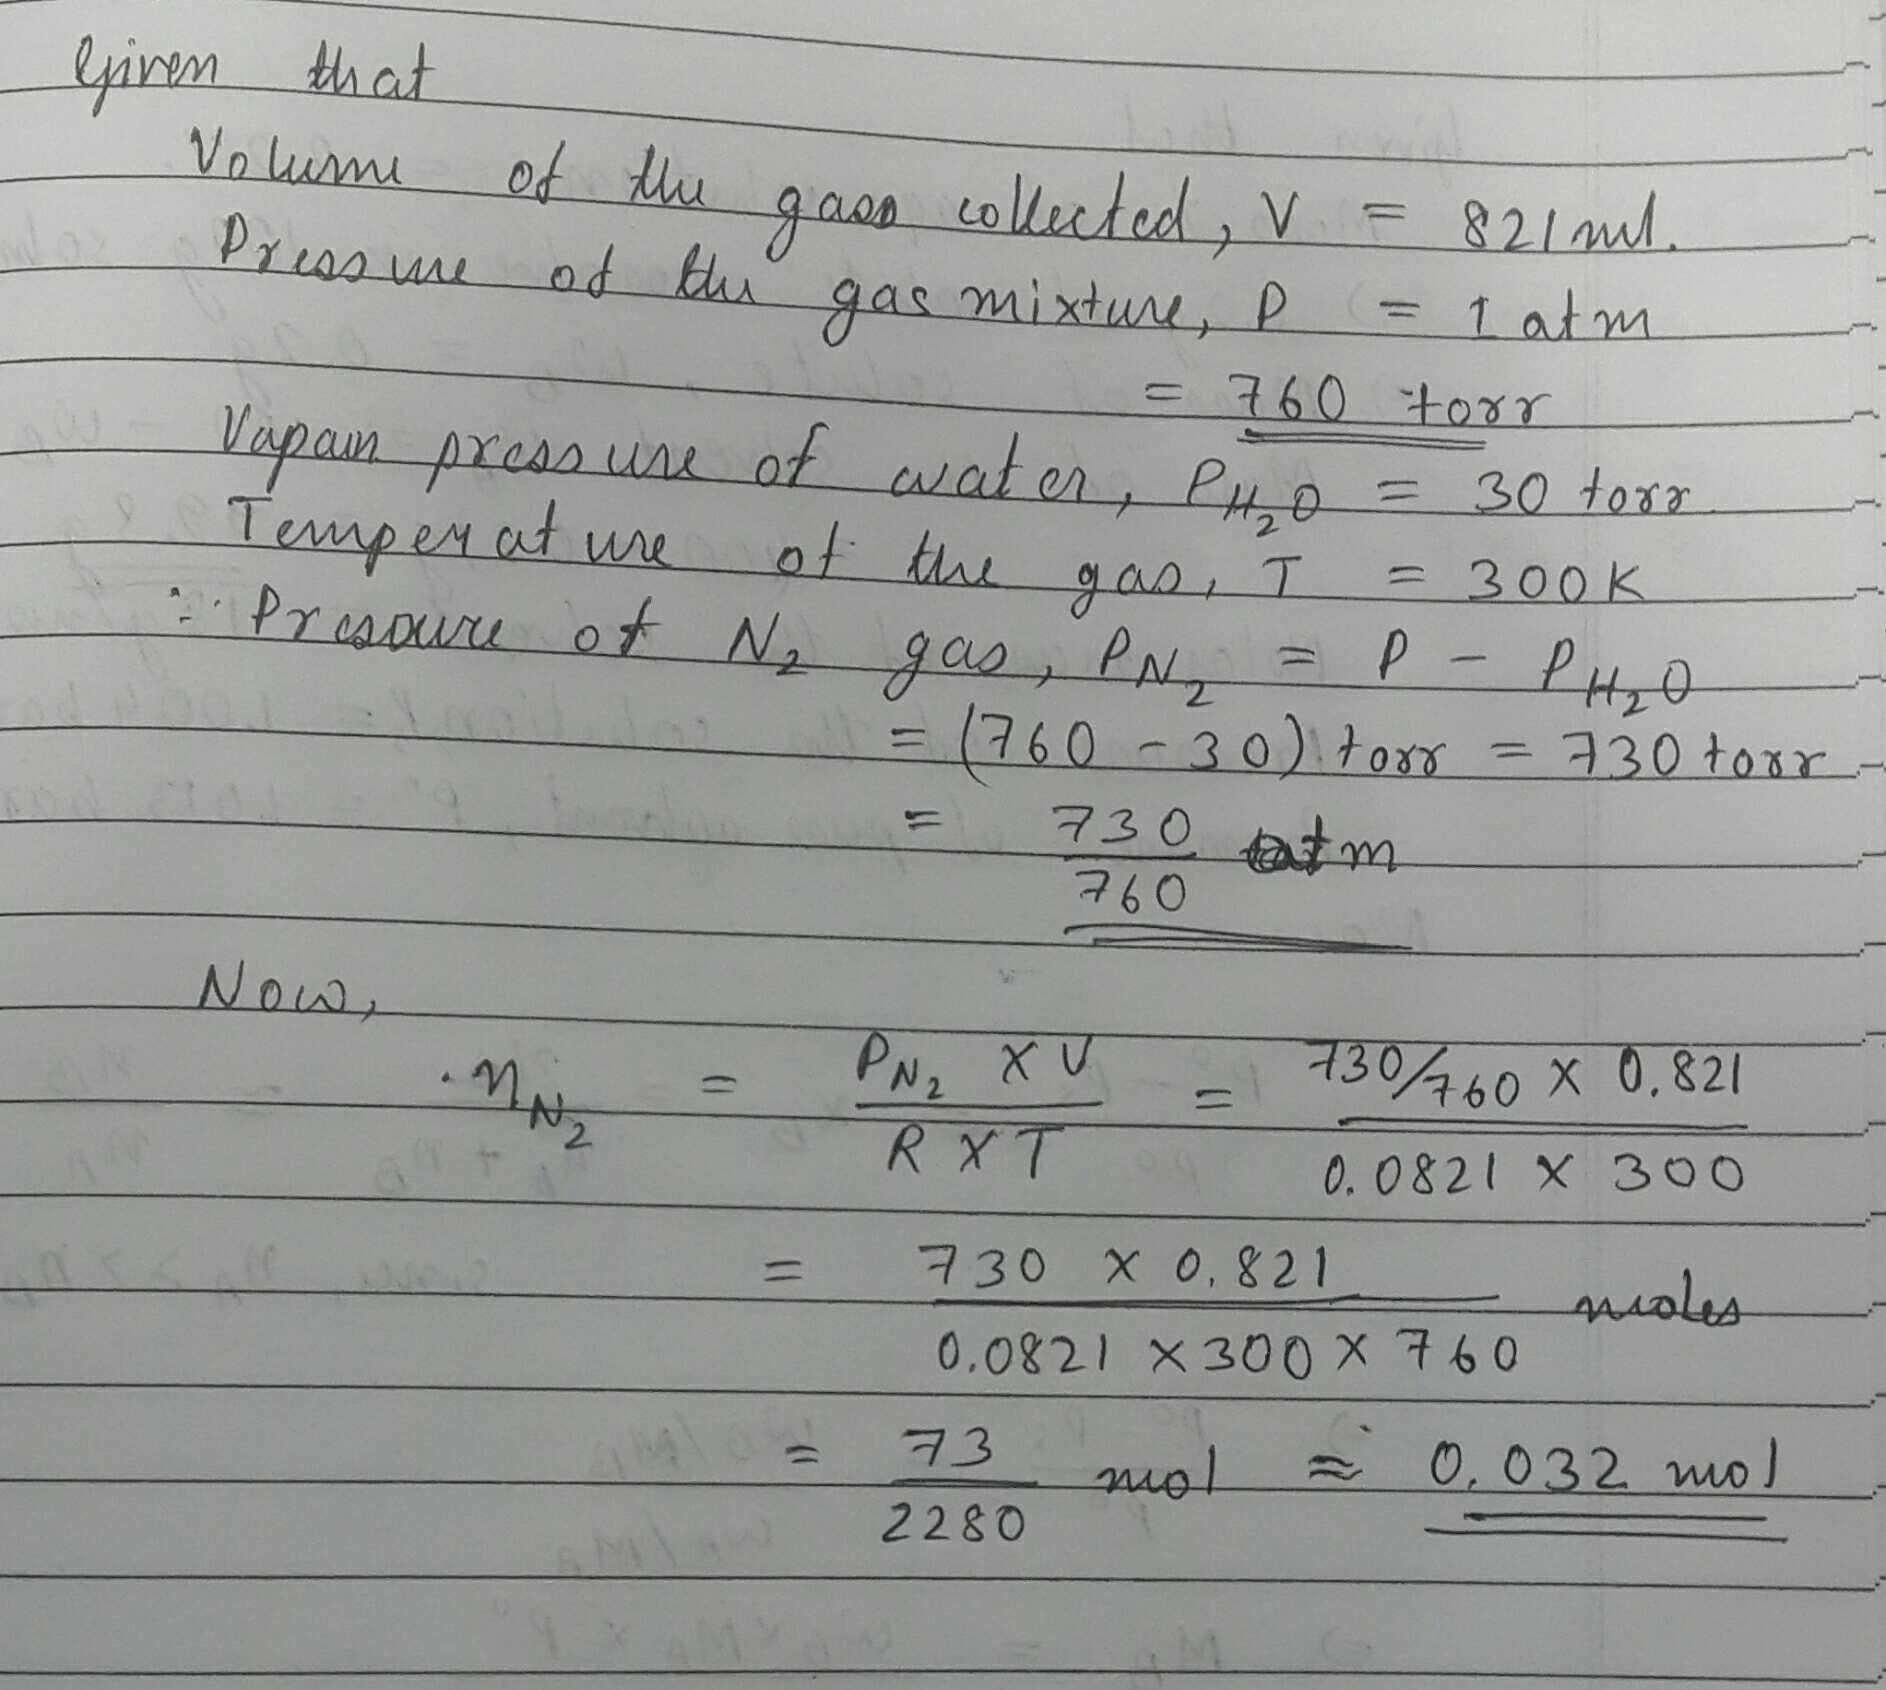 Given that
Volume of the gass collected, V = 821 ml.
Pressure of the gas mixture, P = 1 atm
= 760 torr
Vapour pressure of water, P_H₂O = 30 torr
Temperature of the gas, T = 300K
∴ Pressure of N₂ gas, P_N₂ = P - P_H₂O
= (760 - 30) torr = 730 torr
= 730/760 atm
Now,
n_N₂ = (P_N₂ × V)/(R × T) = (730/760 × 0.821)/(0.0821 × 300)
= (730 × 0.821)/(0.0821 × 300 × 760) moles
= 73/2280 mol ≈ 0.032 mol